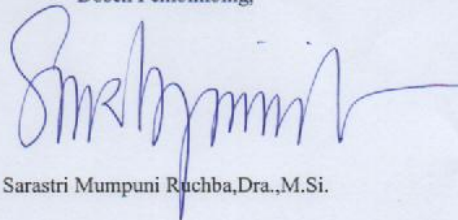 Dosen Pembimbing,
Sarastri Mumpuni Ruchba,Dra.,M.Si.